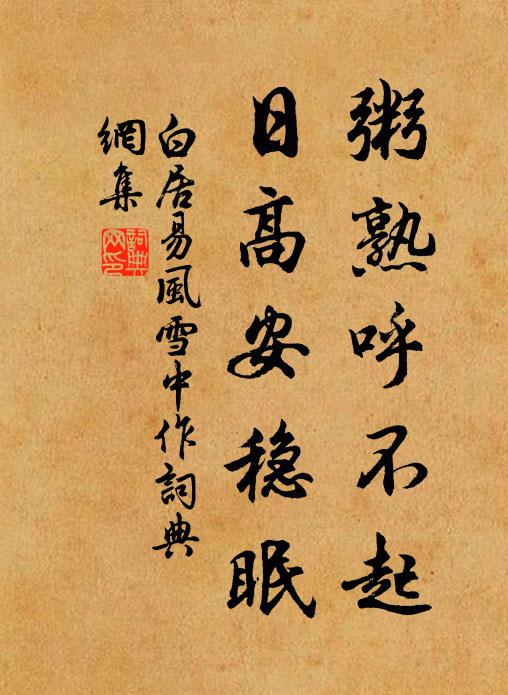 粥熟呼不起
日高安穏眠
白居易風雪中作詞典
網集
詞典網印